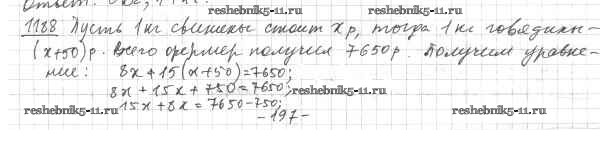 reshebnik5-11.ru
1188 Пусть 1 кг свинины стоит x р, тогда 1 кг говядины-
(x+50) р. Всего фермер получил 7650 р. Получим уравне-
ние: 8x+15(x+50)=7650;
8x+15x+750=7650; reshebnik5-11.ru
reshebnik5-11.ru 15x+8x=7650-750; reshebnik5-11.ru
-197-